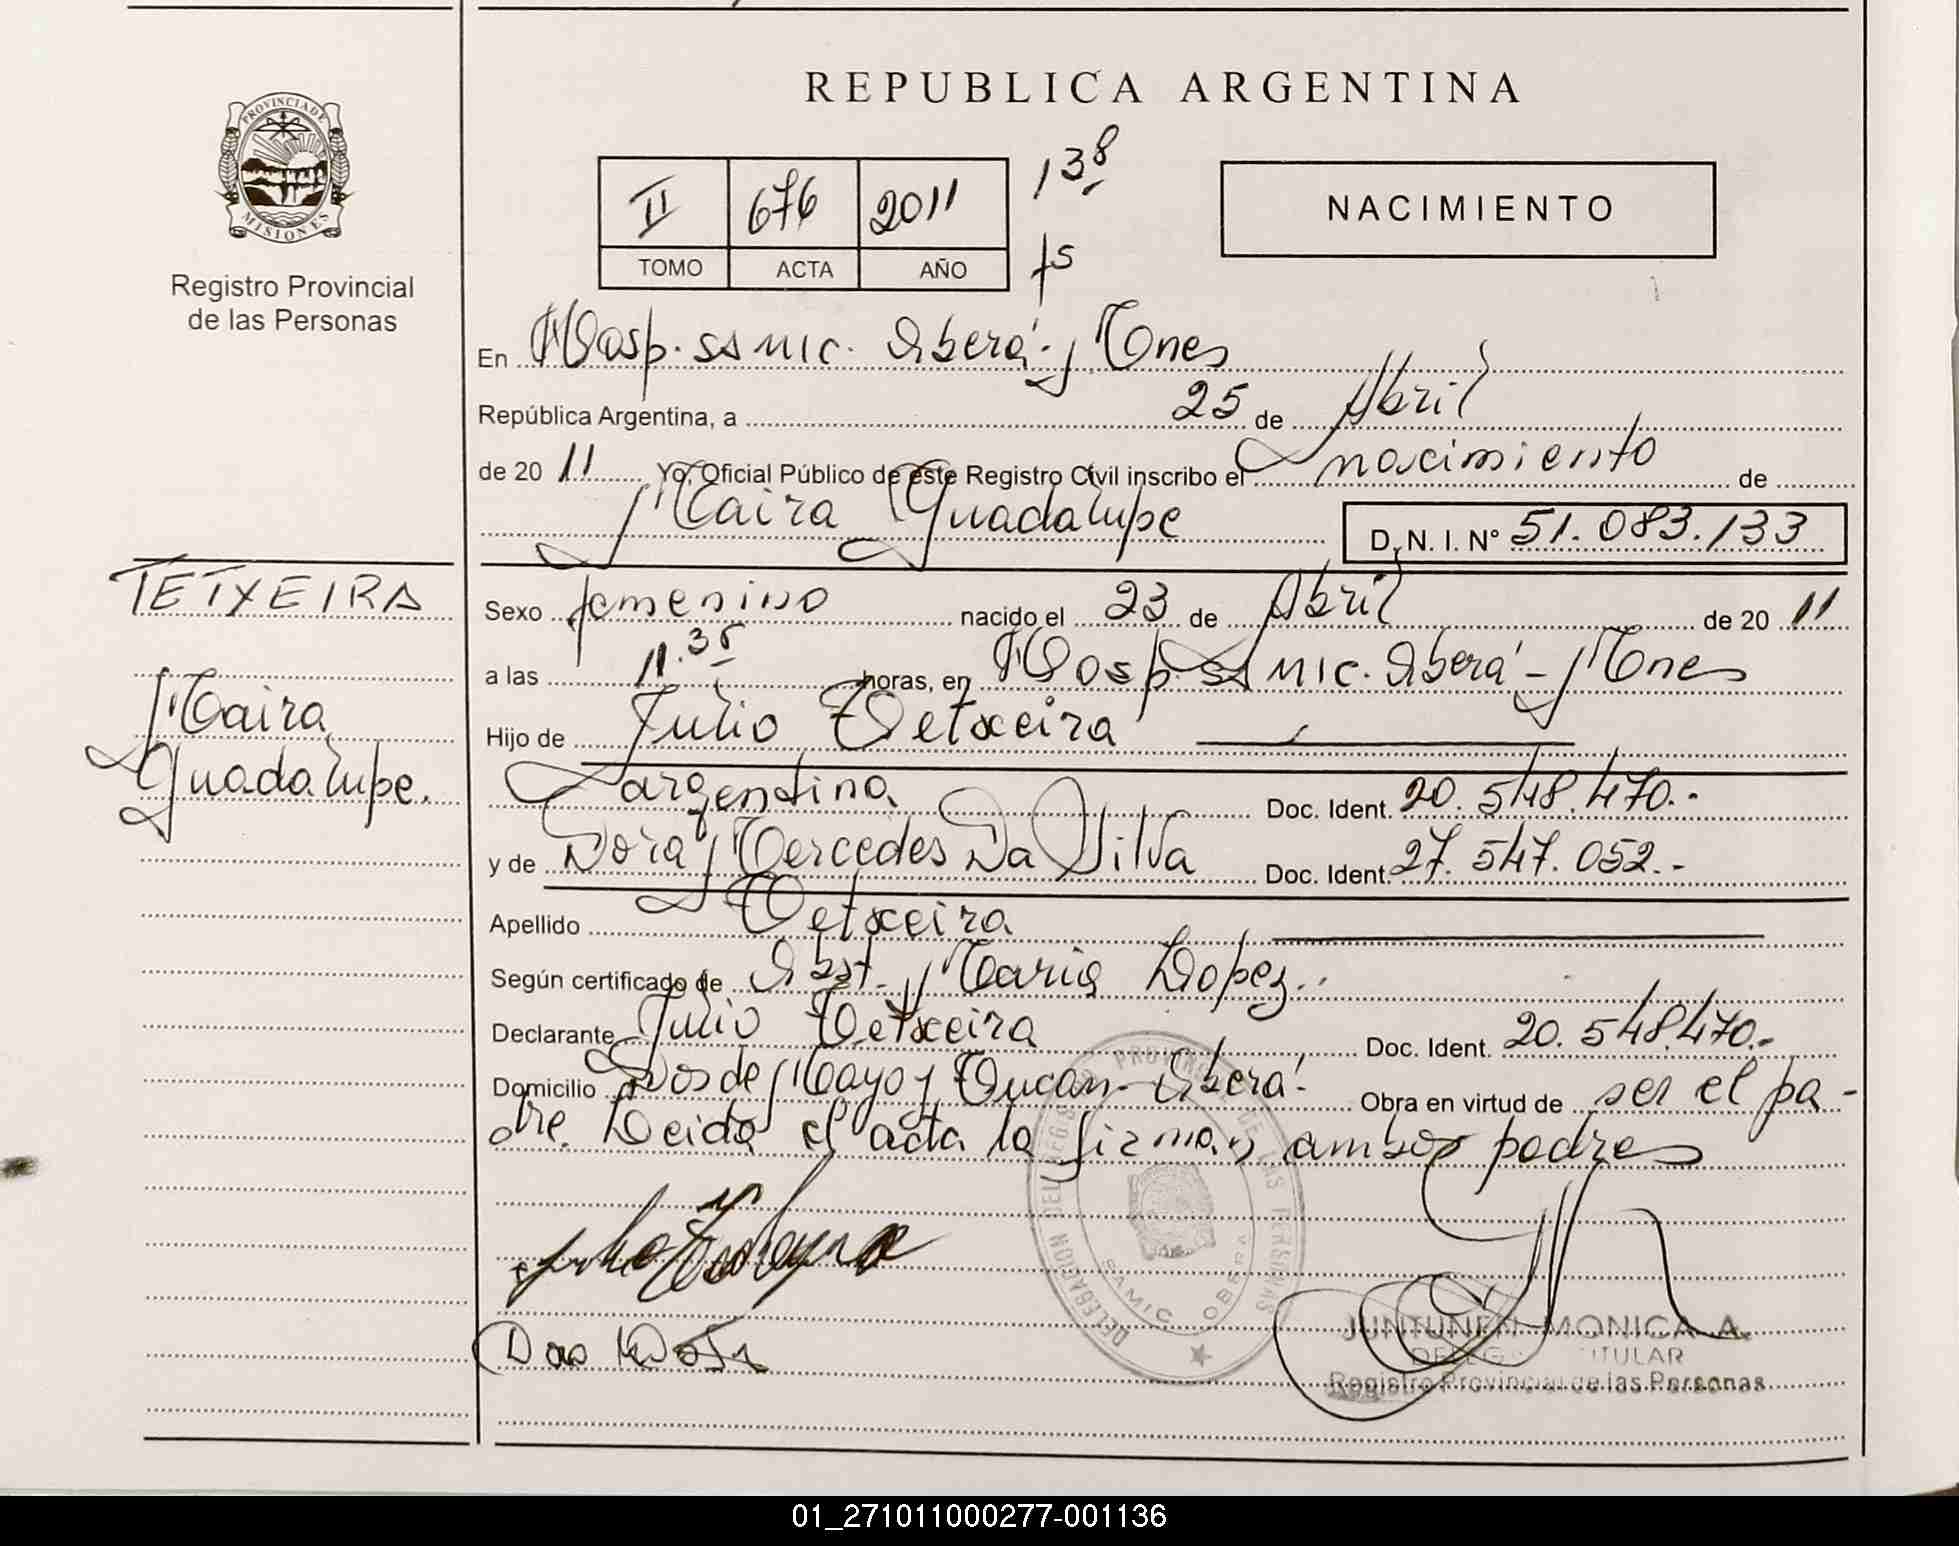 REPUBLICA ARGENTINA
PROVINCIA DE
MISIONES
Registro Provincial
de las Personas
II 676 2011 138
TOMO ACTA AÑO fs
NACIMIENTO
En Hosp. SAMIC. Oberá - Mones
República Argentina, a 25 de Abril
de 20 11 Yo, Oficial Público de este Registro Civil inscribo el nacimiento de
Maira Guadalupe D.N.I. Nº 51.083.133
TETXEIRA
Maira
Guadalupe.
Sexo femenino nacido el 23 de Abril de 20 11
a las 11.35 horas, en Hosp. SAMIC. Oberá - Mones
Hijo de Julio Tetxeira
argentina Doc. Ident. 20.548.470.-
y de Dora Mercedes Da Silva Doc. Ident. 27.547.052.-
Apellido Tetxeira
Según certificado de Obst. Maria Lopez.
Declarante Julio Tetxeira Doc. Ident. 20.548.470.-
Domicilio Dos de Mayo y Tucan - Oberá. Obra en virtud de ser el pa-
dre. Leida el acta la firman ambos padres
DELEGACION DE LAS PERSONAS
SAMIC OBERA
JUNTUNEN MONICA A.
TITULAR
Registro Provincial de las Personas
01_271011000277-001136